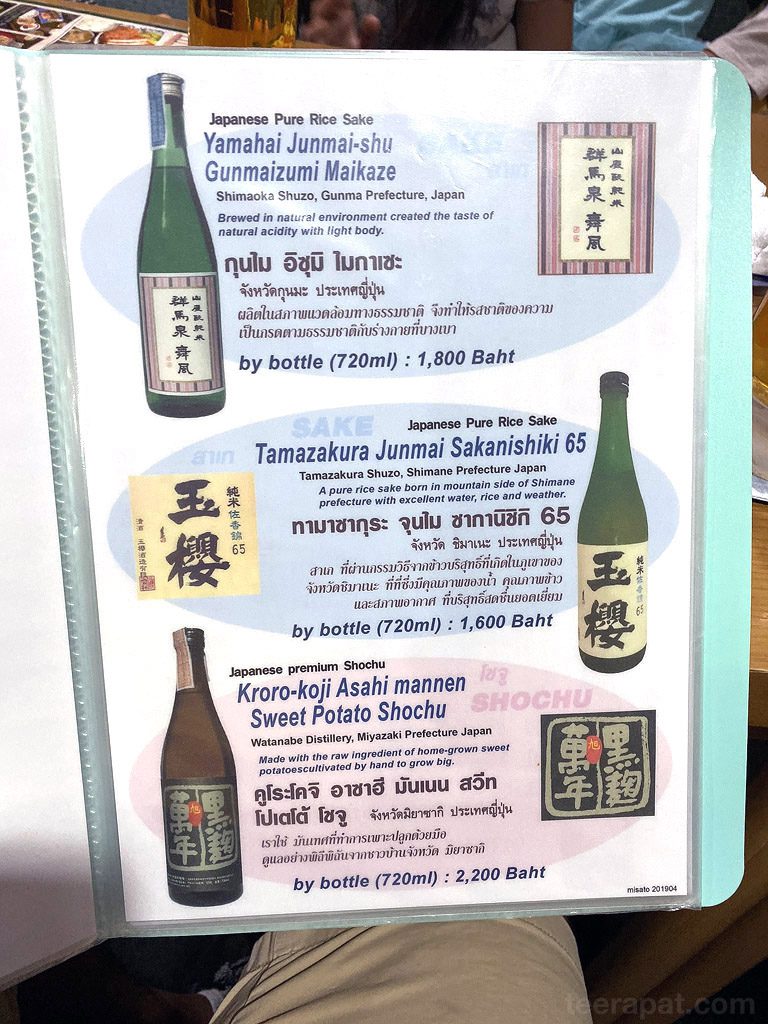 Japanese Pure Rice Sake
Yamahai Junmai-shu
Gunmaizumi Maikaze
Shimaoka Shuzo, Gunma Prefecture, Japan
Brewed in natural environment created the taste of
natural acidity with light body.
กุนไม อิซุมิ ไมกาเซะ
จังหวัดกุนมะ ประเทศญี่ปุ่น
ผลิตในสภาพแวดล้อมทางธรรมชาติ จึงทำให้รสชาติของความ
เป็นกรดตามธรรมชาติกับร่างกายที่บางเบา
by bottle (720ml) : 1,800 Baht
山廃酛純米
群馬泉 舞風
山廃酛純米
群馬泉 舞風
SAKE
สาเก
SAKE
สาเก
Japanese Pure Rice Sake
Tamazakura Junmai Sakanishiki 65
Tamazakura Shuzo, Shimane Prefecture Japan
A pure rice sake born in mountain side of Shimane
prefecture with excellent water, rice and weather.
ทามาซากุระ จุนไม ซากานิชิกิ 65
จังหวัด ชิมาเนะ ประเทศญี่ปุ่น
สาเก ที่ผ่านกรรมวิธีจากข้าวบริสุทธิ์ที่เกิดในภูเขาของ
จังหวัดชิมาเนะ ที่ที่ซึ่งมีคุณภาพของน้ำ คุณภาพข้าว
และสภาพอากาศ ที่บริสุทธิ์สดชื่นยอดเยี่ยม
by bottle (720ml) : 1,600 Baht
純米佐香錦65
玉櫻
清酒 玉櫻酒造有限会社
純米佐香錦65
玉櫻
Japanese premium Shochu
Kroro-koji Asahi mannen
Sweet Potato Shochu
โชจู
SHOCHU
Watanabe Distillery, Miyazaki Prefecture Japan
Made with the raw ingredient of home-grown sweet
potatoescultivated by hand to grow big.
คูโระโคจิ อาซาฮี มันเนน สวีท
โปเตโต้ โชจู จังหวัดมิยาซากิ ประเทศญี่ปุ่น
เราใช้ มันเทศที่ทำการเพาะปลูกด้วยมือ
ดูแลอย่างพิถีพิถันจากชาวบ้านจังหวัด มิยาซากิ
by bottle (720ml) : 2,200 Baht
黒麹
旭
萬年
黒麹
旭
萬年
misato 201904
teerapat.com